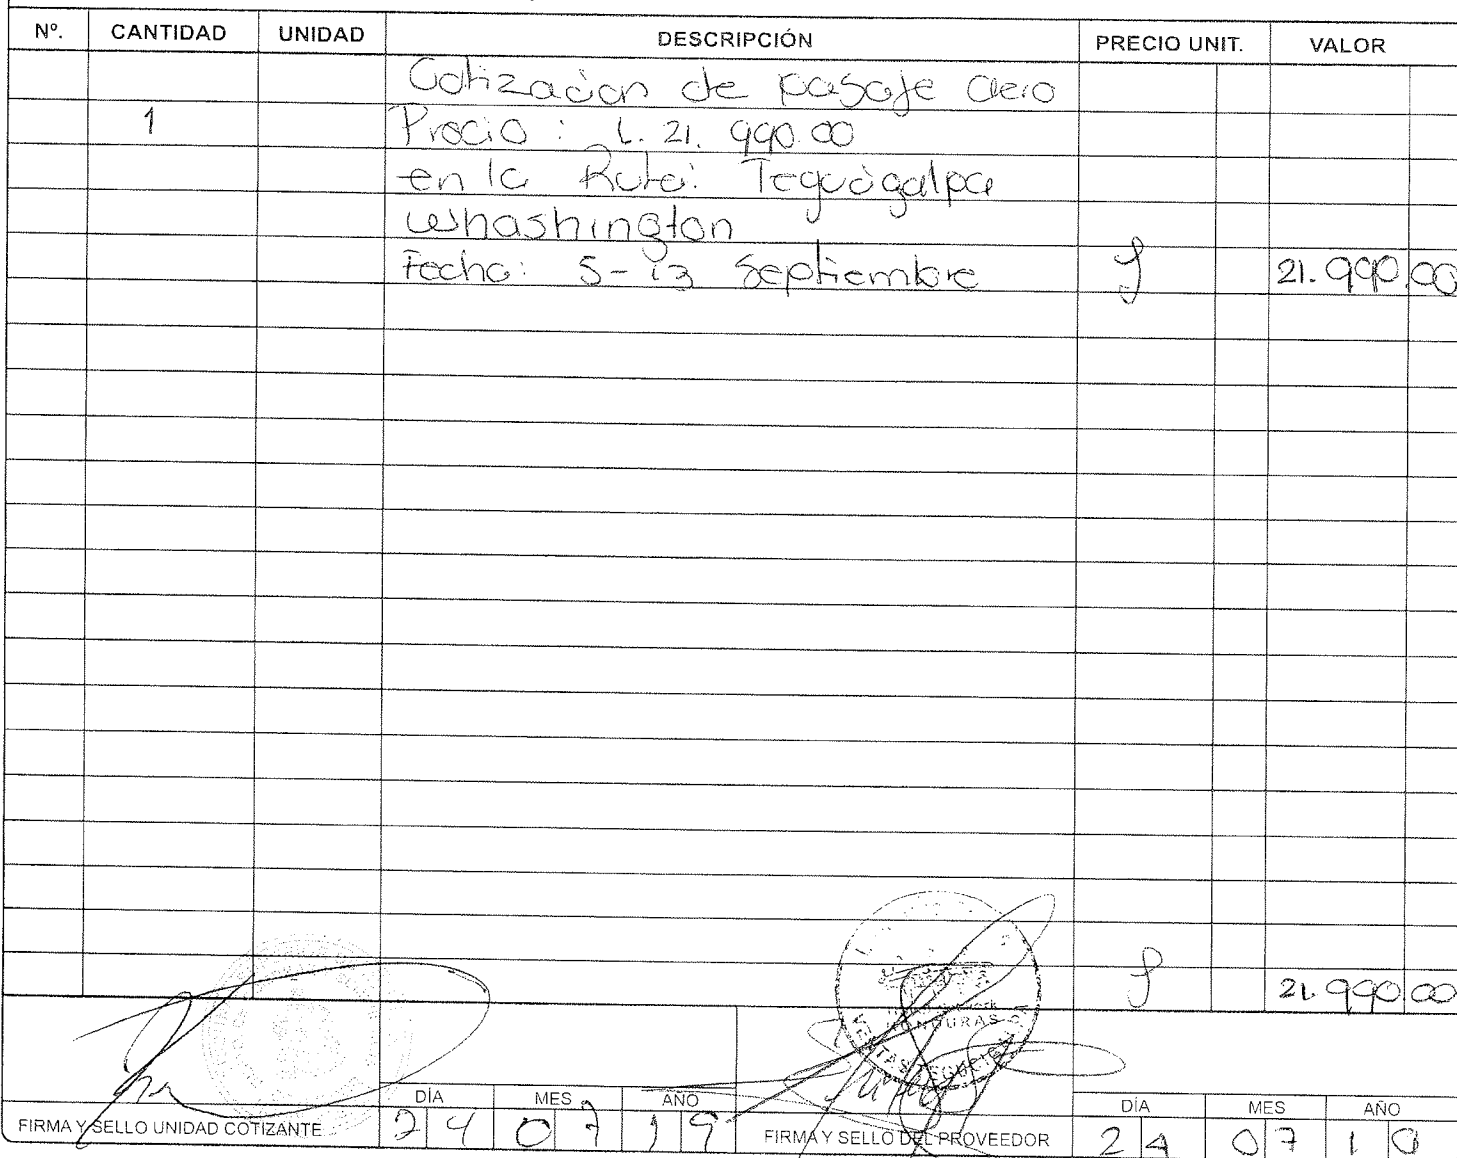 Nº. CANTIDAD UNIDAD DESCRIPCIÓN PRECIO UNIT. VALOR
Cotización de pasaje aero
1 Precio : L. 21. 990.00
en la Ruta: Tegucigalpa
Whashington
Fecha: 5-13 Septiembre 21.990.00
21.990.00
HONDURAS
VENTAS TEGUCIGALPA
DÍA MES AÑO DÍA MES AÑO
FIRMA Y SELLO UNIDAD COTIZANTE 24 07 19 FIRMA Y SELLO DEL PROVEEDOR 24 07 19